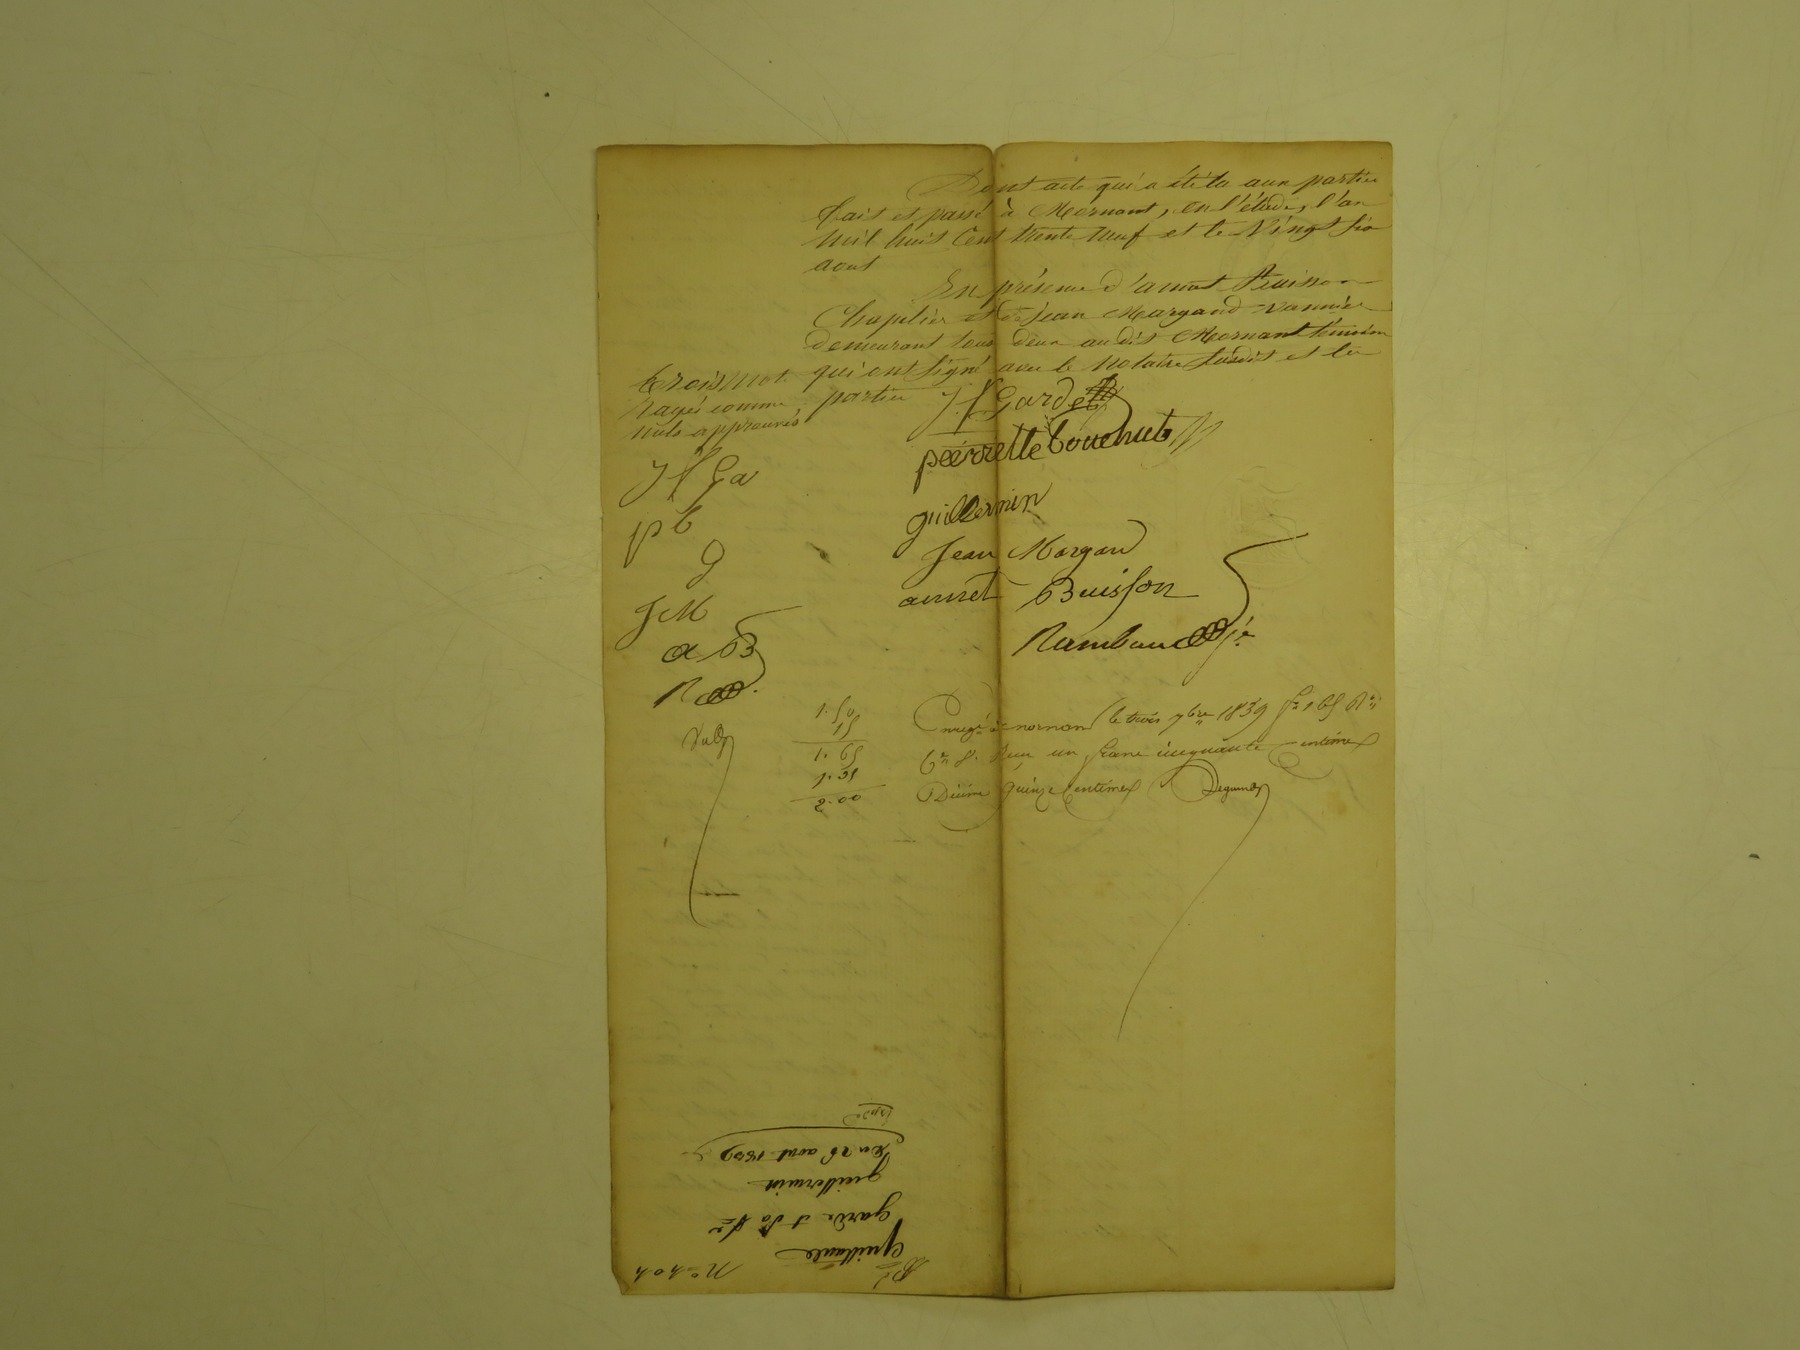 Dont acte qui a été lu aux parties
fait et passé à Mornant, en l'étude, l'an
mil huit cent trente neuf et le vingt six
aout
En présence d'annet Buisson
Chapelier et de jean Margand vannier
demeurant tous deux au dit Mornant témoins
qui ont signé avec le notaire susdit et les
parties
trois mots
rayés comme
nuls approuvés
jf Garde
pierrette bouchut
guillermin
Jean Margan
annet Buisson
Rambaud
jf Ga
pb
g
JM
a B
R
Enregé à mornant le trois 7bre 1839 fo 165 Ro
Ce 8. Reçu un franc cinquante centimes
Décime quinze centimes
1.50
15
1.65
2.00
No 404
Quittance
garde et sa fe
guillermin
Du 26 aout 1839